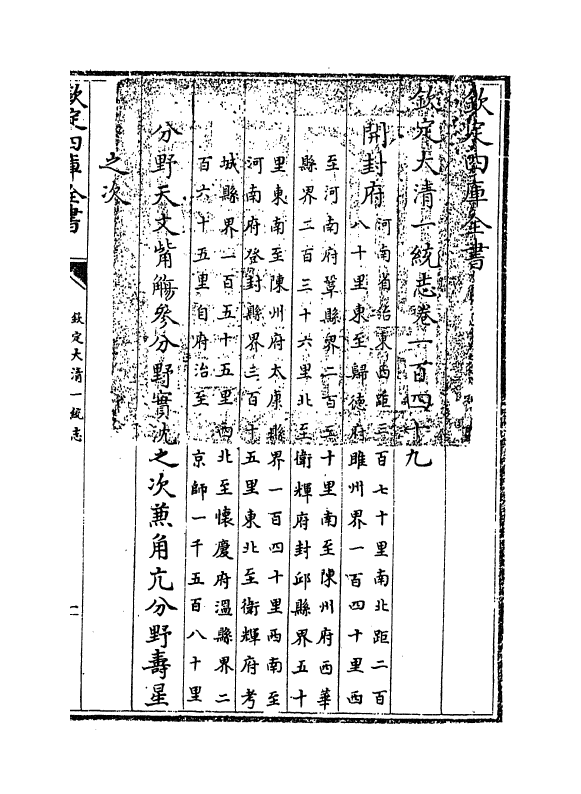 欽定四庫全書
欽定大清一統志卷一百四十九
開封府
河南省治東西距三百七十里南北距二百
八十里東至歸德府睢州界一百四十里西
至河南府鞏縣界二百三十里南至陳州府西華
縣界二百三十六里北至衛輝府封邱縣界五十
里東南至陳州府太康縣界一百四十里西南至
河南府登封縣界三百十五里東北至衛輝府考
城縣界一百五十五里西北至懷慶府溫縣界二
百六十五里自府治至京師一千五百八十里
分野天文觜觿參分野實沈之次兼角亢分野壽星
之次
欽定四庫全書
欽定大清一統志
一